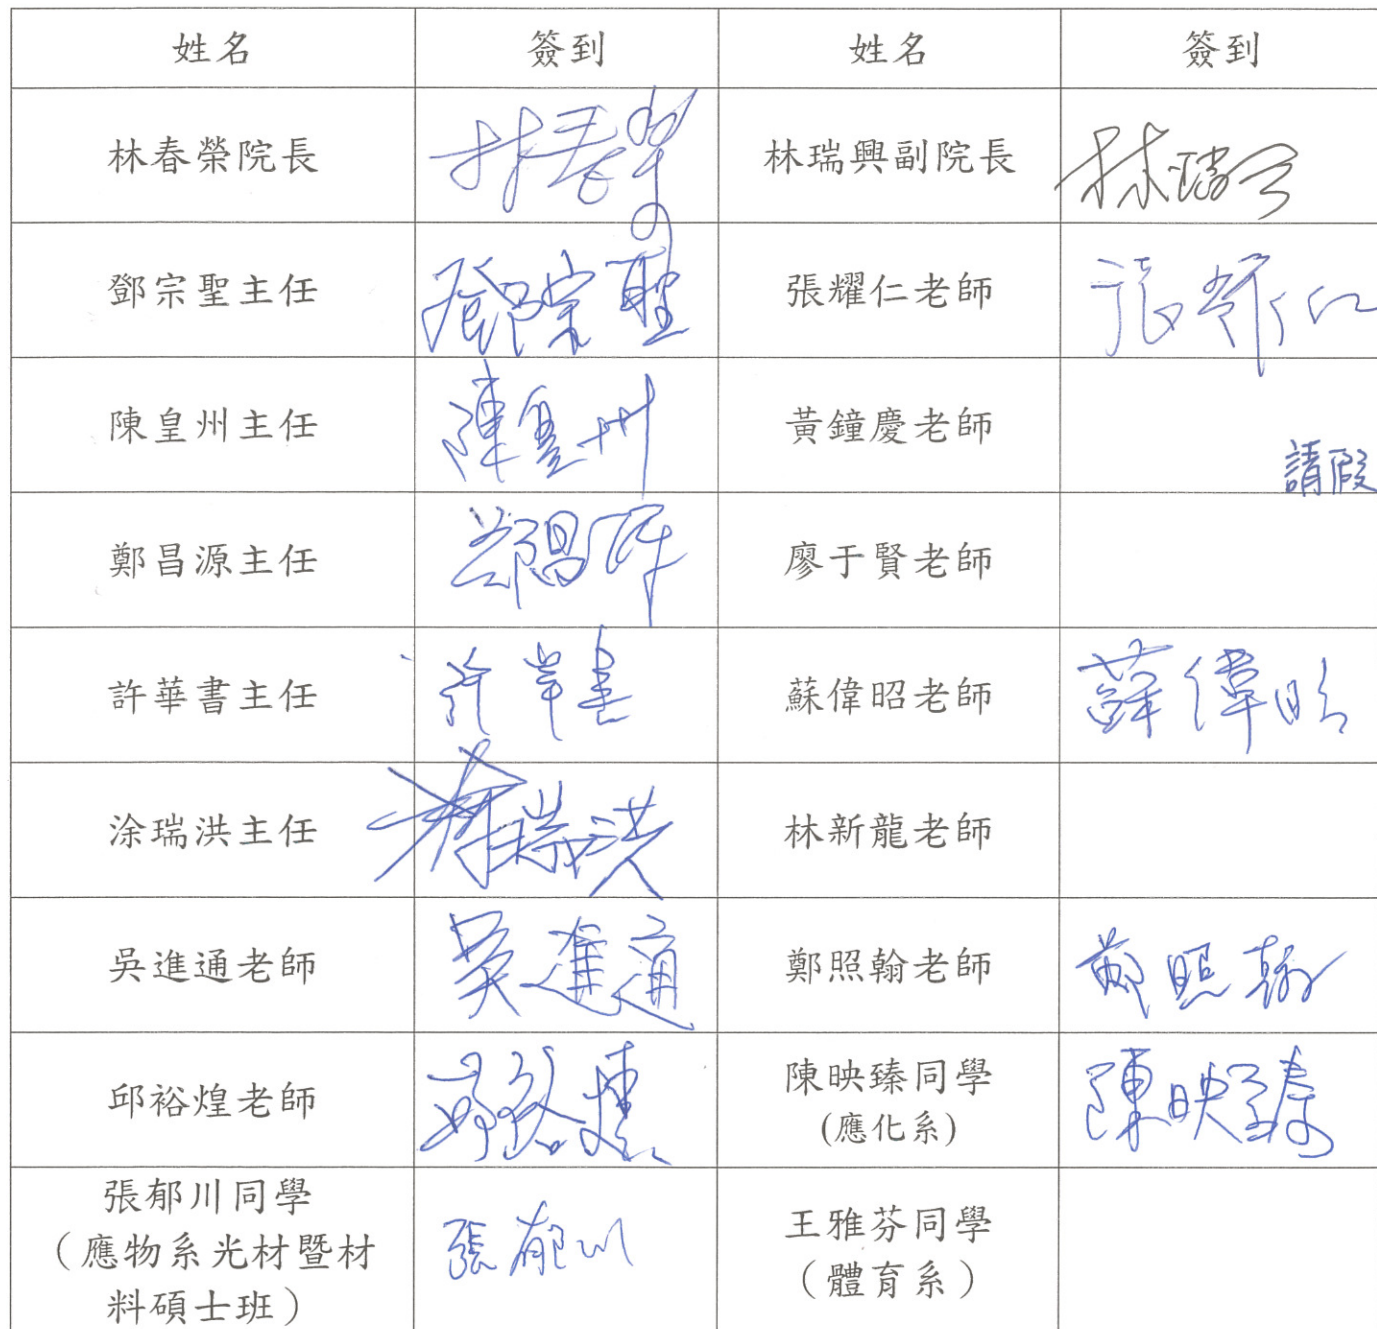 姓名 簽到 姓名 簽到
林春榮院長 林春榮 林瑞興副院長 林瑞興
鄧宗聖主任 鄧宗聖 張耀仁老師 張耀仁
陳皇州主任 陳皇州 黃鐘慶老師 請假
鄭昌源主任 鄭昌源 廖于賢老師
許華書主任 許華書 蘇偉昭老師 蘇偉昭
涂瑞洪主任 涂瑞洪 林新龍老師
吳進通老師 吳進通 鄭照翰老師 鄭照翰
邱裕煌老師 邱裕煌 陳映臻同學 陳映臻
(應化系)
張郁川同學 張郁川 王雅芬同學
（應物系光材暨材 （體育系）
料碩士班）